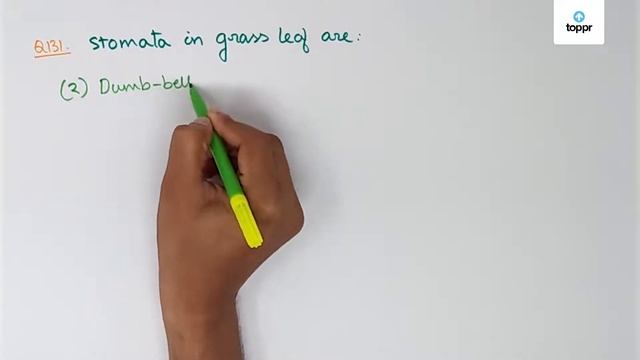 toppr
Q131. Stomata in grass leaf are:
(2) Dumb-bell